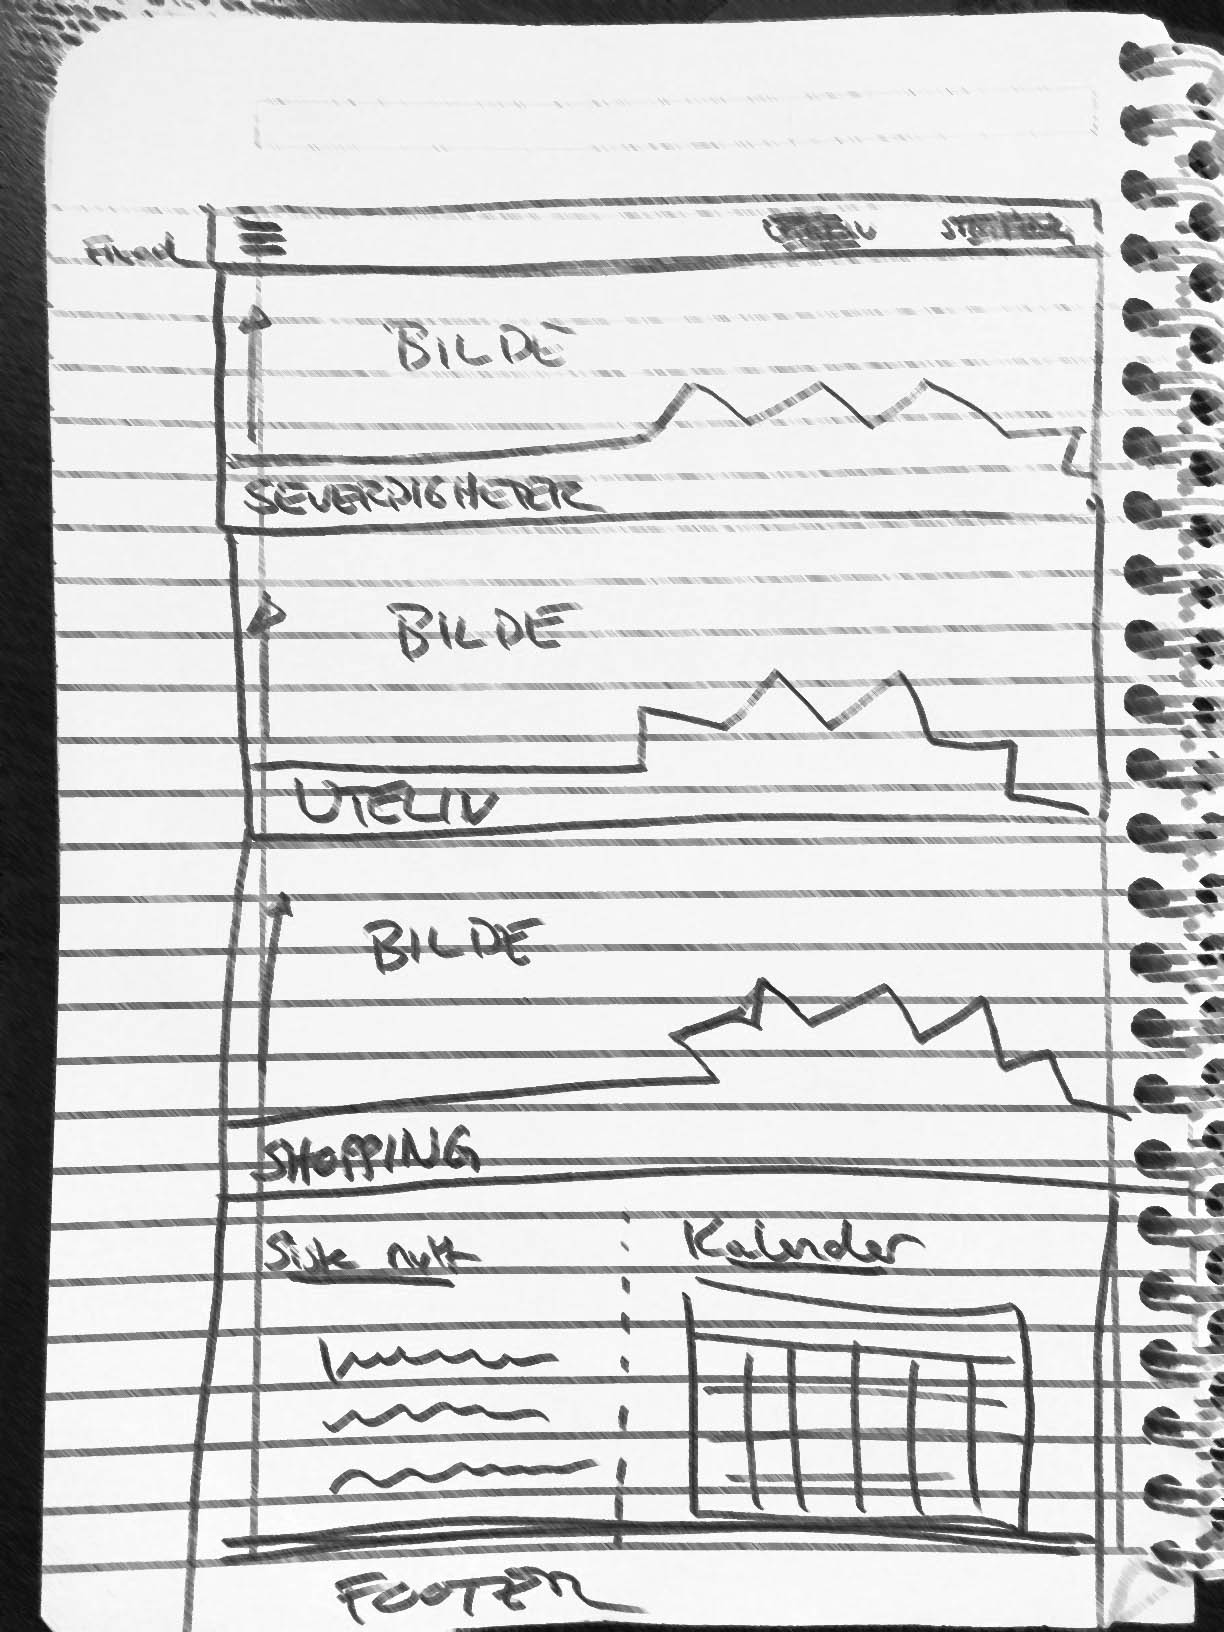 BILDE
SEVERDIGHETER
BILDE
UTELIV
BILDE
SHOPPING
Siste nytt
Kalender
FOOTER